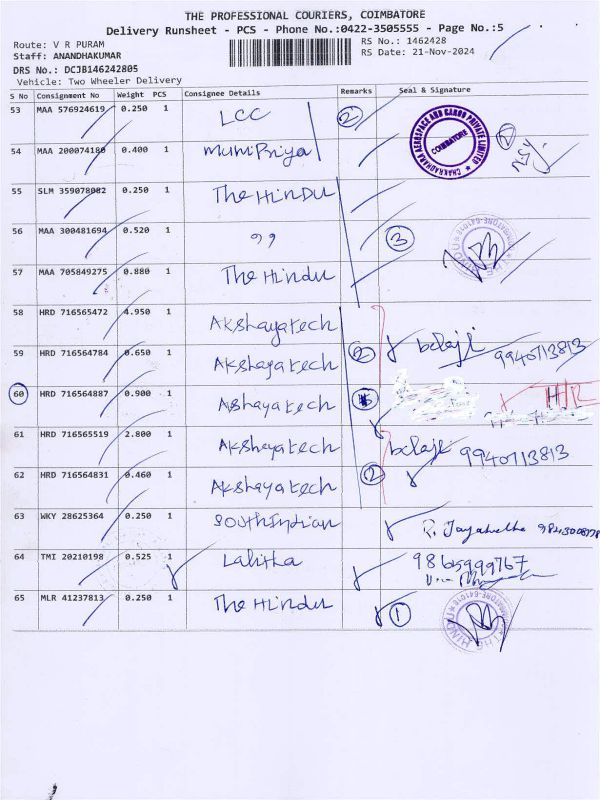 THE PROFESSIONAL COURIERS, COIMBATORE
Delivery Runsheet - PCS - Phone No.:0422-3505555 - Page No.:5
Route: V R PURAM
RS No.: 1462428
Staff: ANANDHAKUMAR
RS Date: 21-Nov-2024
DRS No.: DCJB146242805
Vehicle: Two Wheeler Delivery
S No Consignment No Weight PCS Consignee Details Remarks Seal & Signature
53 MAA 576924619 0.250 1 LCC 2
CHAKRADHARA AEROSPACE AND CARGO PRIVATE LIMITED
COIMBATORE
54 MAA 200074180 0.400 1 MuniPriya
55 SLM 359078082 0.250 1 The HINDU
56 MAA 300481694 0.520 1 " 3
57 MAA 705849275 0.880 1 The Hindu
58 HRD 716565472 4.950 1 Akshayatech
59 HRD 716564784 0.650 1 Akshayatech 2 balaji 9940713813
60 HRD 716564887 0.900 1 Akshayatech H/R
61 HRD 716565519 2.800 1 Akshayatech balaji 9940713813
62 HRD 716564831 0.460 1 Akshayatech 2
63 WKY 28625364 0.250 1 South Indian
64 TMI 20210198 0.525 1 Lalitha 9865999767
65 MLR 41237813 0.250 1 The Hindu 1